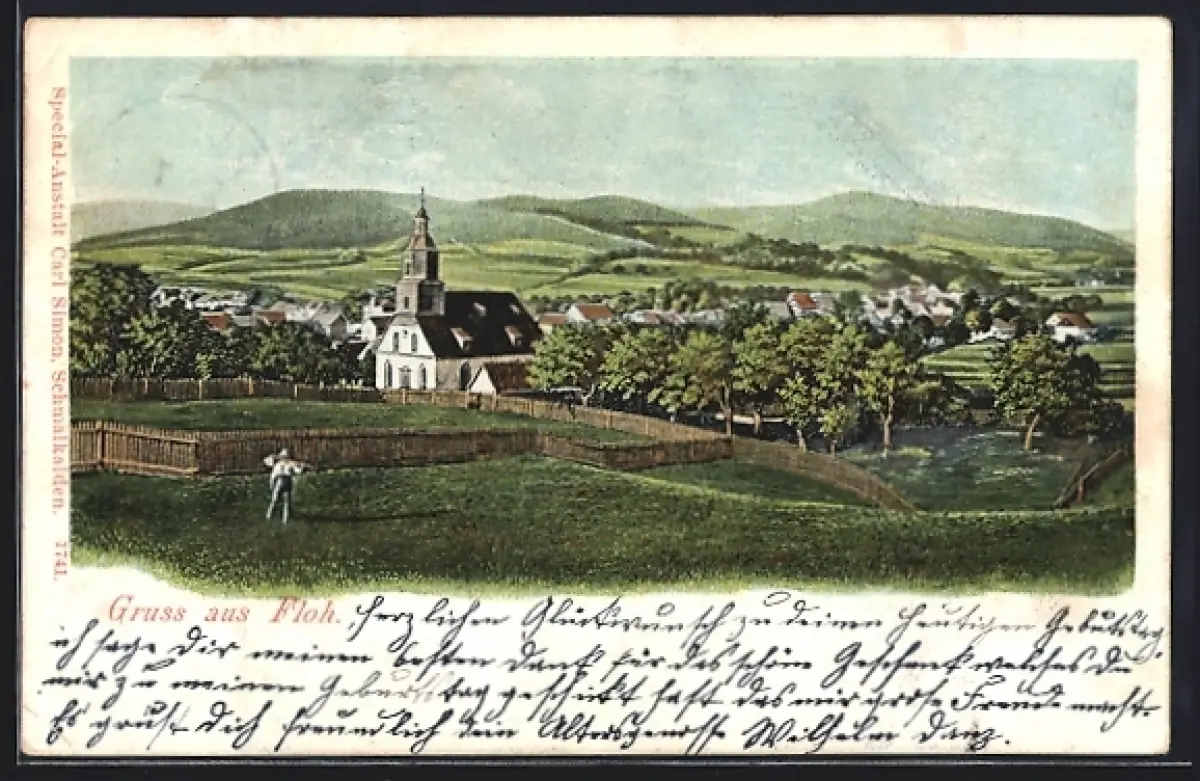 Special-Anstalt Carl Simon, Schmalkalden. 1741.
Gruss aus Floh.
Herzlichen Glückwunsch zu deinem heutigen Geburtstag
ich sage Dir meinen besten Dank für das schöne Geschenk welches Du
mir zu meinem Geburtstag geschickt hast das mir große Freude macht.
Es grüst Dich freundlich dein Altersgenosse Wilhelm Danz.